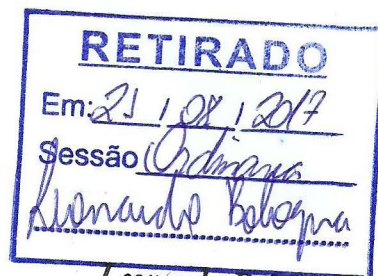 RETIRADO
Em: 21 / 08 / 2017
Sessão Ordinaria
Leonardo Bologna